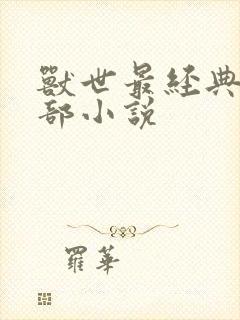 獸世最經典
部小說
羅華